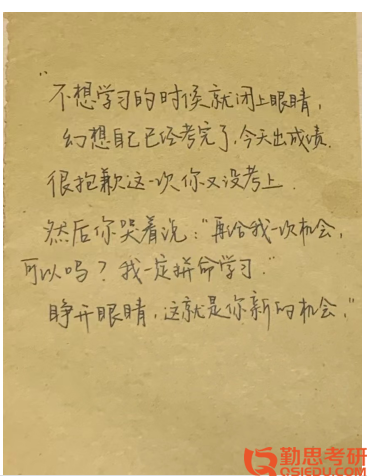 "不想学习的时候就闭上眼睛,
幻想自己已经考完了,今天出成绩.
很抱歉这一次你又没考上.
然后你哭着说:"再给我一次机会,
可以吗?我一定拼命学习."
睁开眼睛,这就是你新的机会."
勤思考研
QSIEDU.COM